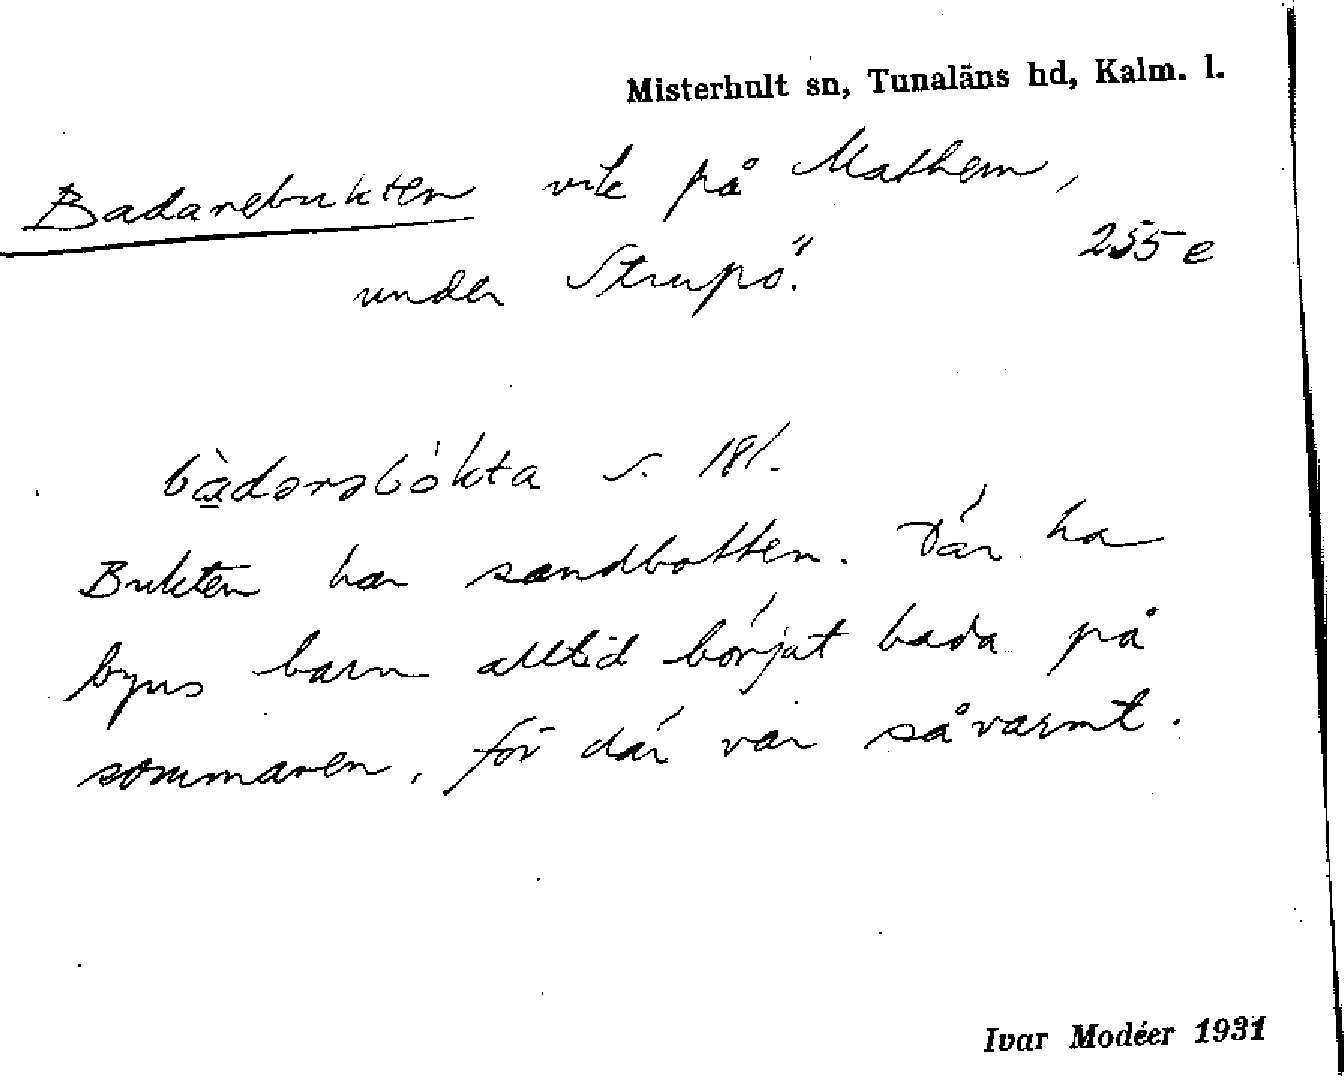 Misterhult sn, Tunaläns hd, Kalm. l.
Badarebukten vik på Mathem,
under Strupö.
255 e
bà̱dərəbókta s. 181.
Bukten har sandbotten. Där ha
byns barn alltid börjat bada på
sommaren, för där var så varmt.
Ivar Modéer 1931